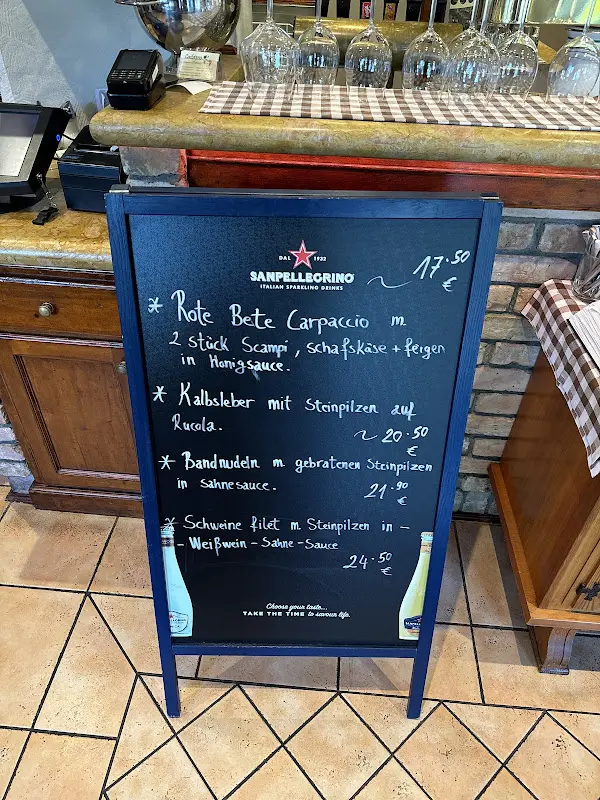 DAL 1932
SANPELLEGRINO
ITALIAN SPARKLING DRINKS
~ 17.50
€
* Rote Bete Carpaccio m.
2 Stück Scampi, Schafskäse + feigen
in Honigsauce.
* Kalbsleber mit Steinpilzen auf
Rucola.
~ 20.50
€
* Bandnudeln m. gebratenen Steinpilzen
in Sahnesauce.
21.90
€
* Schweine filet m. Steinpilzen in -
- Weißwein-Sahne-Sauce
24.50
€
Choose your taste...
TAKE THE TIME to savour life.